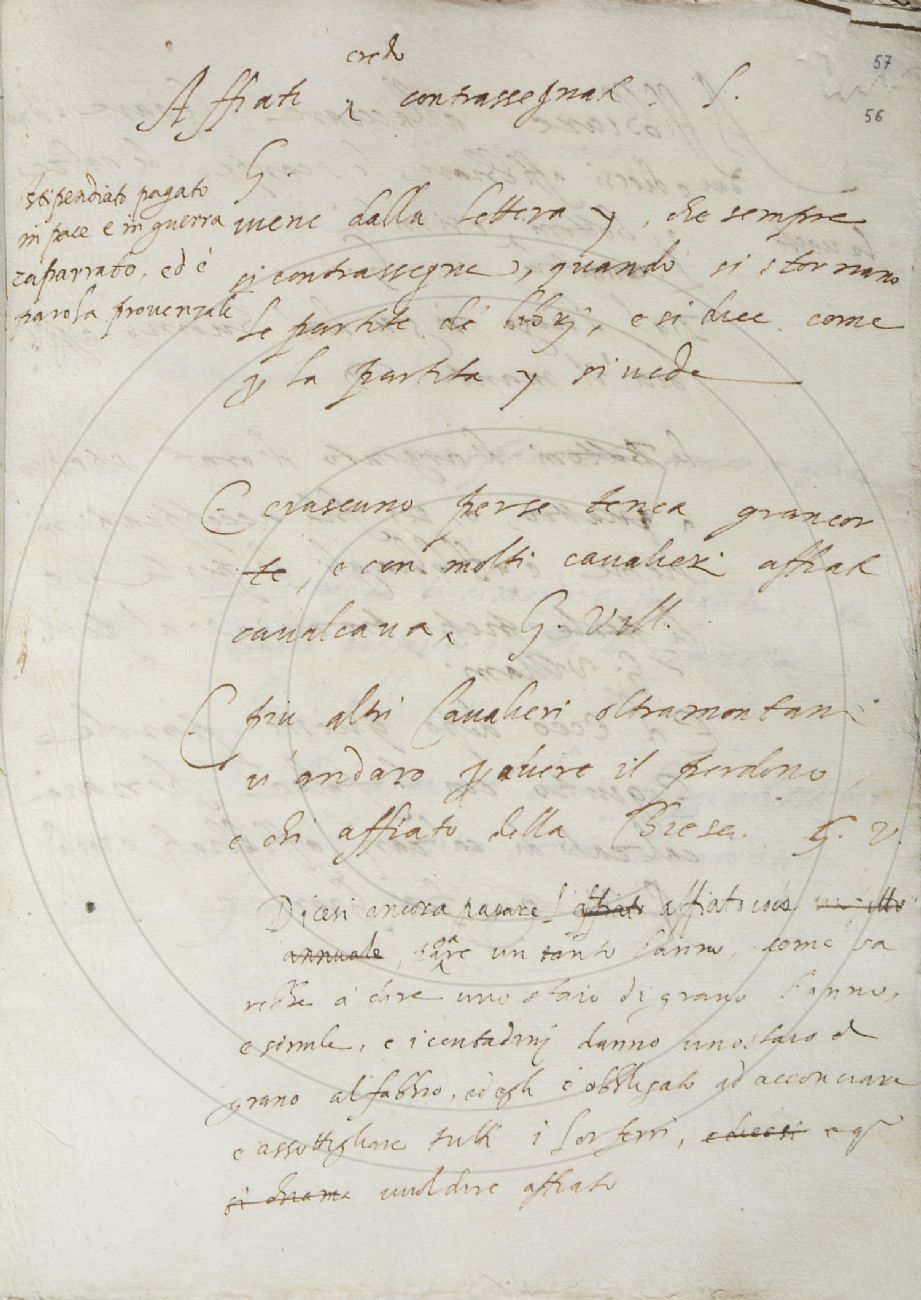 57
56
credo
Affiati contrassegnati. S.
G.
stipendiato pagato
in pace e in guerra
caparrato, ed è
parola provenzale
viene dalla lettera y, che sempre
si contrassegne, quando si stornano
le partite de libri, e si dice come
p la partita y si vede
Cierascuno per se tenea grancor
te, e con molti cavalieri affiati
cavalcava, G. Vill.
E piu altri Cavalieri oltramontani
v'andaro p avere il perdono
e chi affiato della Chiesa. G. V.
Dicesi ancora pagare l'affiato affiato cioè
annuale, pagare un tanto l'anno, come sa
rebbe à dire uno staio di grano l'anno,
e simile, e i contadini danno uno staio d
grano al fabbro, ed egli è obbligato ad acconciare
e assottigliare tutti i lor ferri, e dicesi e q
si chiama vuol dire affiato